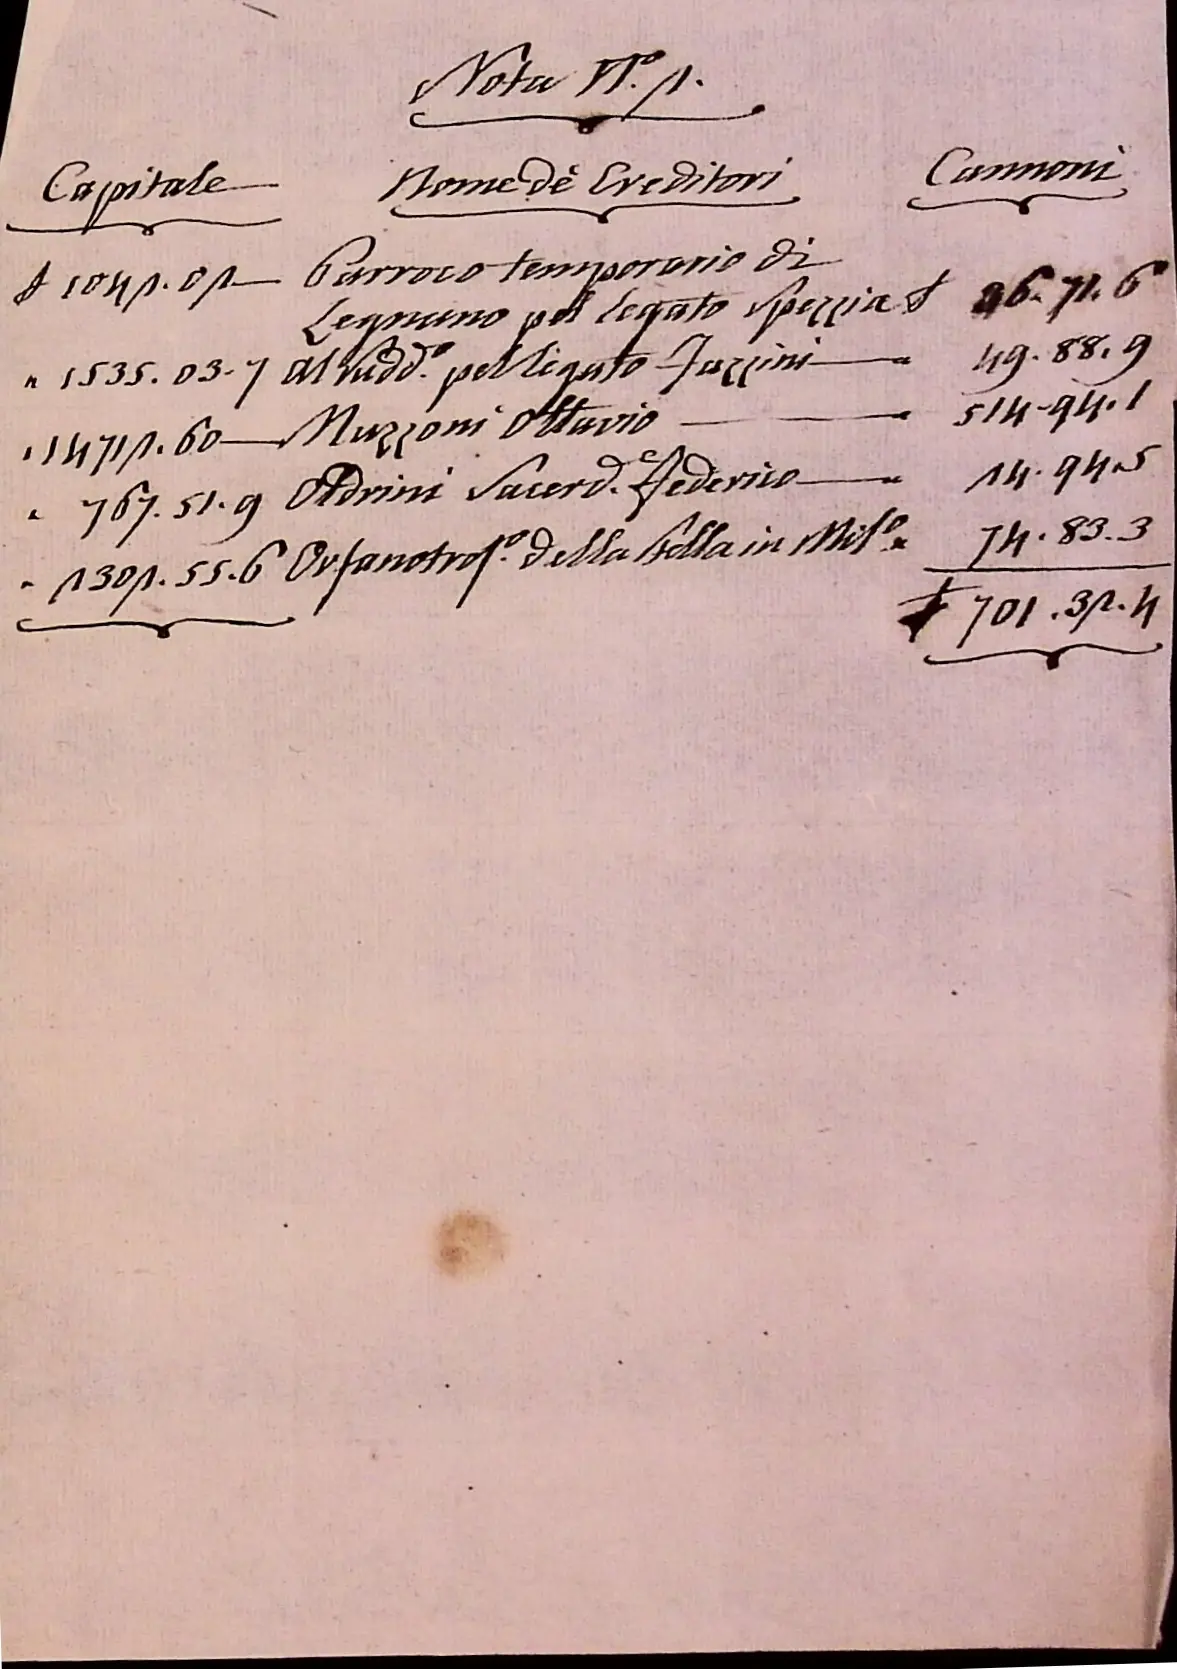 Nota N.º 1.
Capitale Nome de' Creditori Cannoni
£ 1041.01 — Parroco temporario di
Legnano pel legato Spezzia £ 46.71.6
" 1535.03.7 Al sudd.º pel legato Fazzini — " 49.88.9
" 14711.60 — Muzzoni Ottavio — " 514.94.1
" 767.51.9 Oldrini Sacerd.e Federico — " 14.94.5
" 1301.55.6 Orfanotrof.º della Stella in Mil.º " 74.83.3
£ 701.31.4